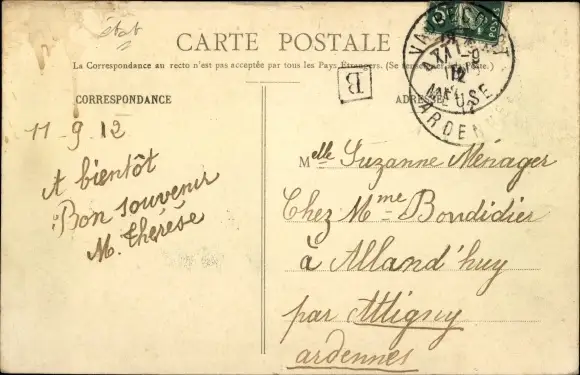 état
CARTE POSTALE
La Correspondance au recto n'est pas acceptée par tous les Pays Étrangers. (Se
B
CORRESPONDANCE
ADRESSE
11_9_12
A bientôt
Bon souvenir
M. Thérèse
Melle Suzanne Ménager
Chez Mme Bondidier
à Alland'huy
par Attigny
ardennes
POSTES
11-9
12
MEUSE